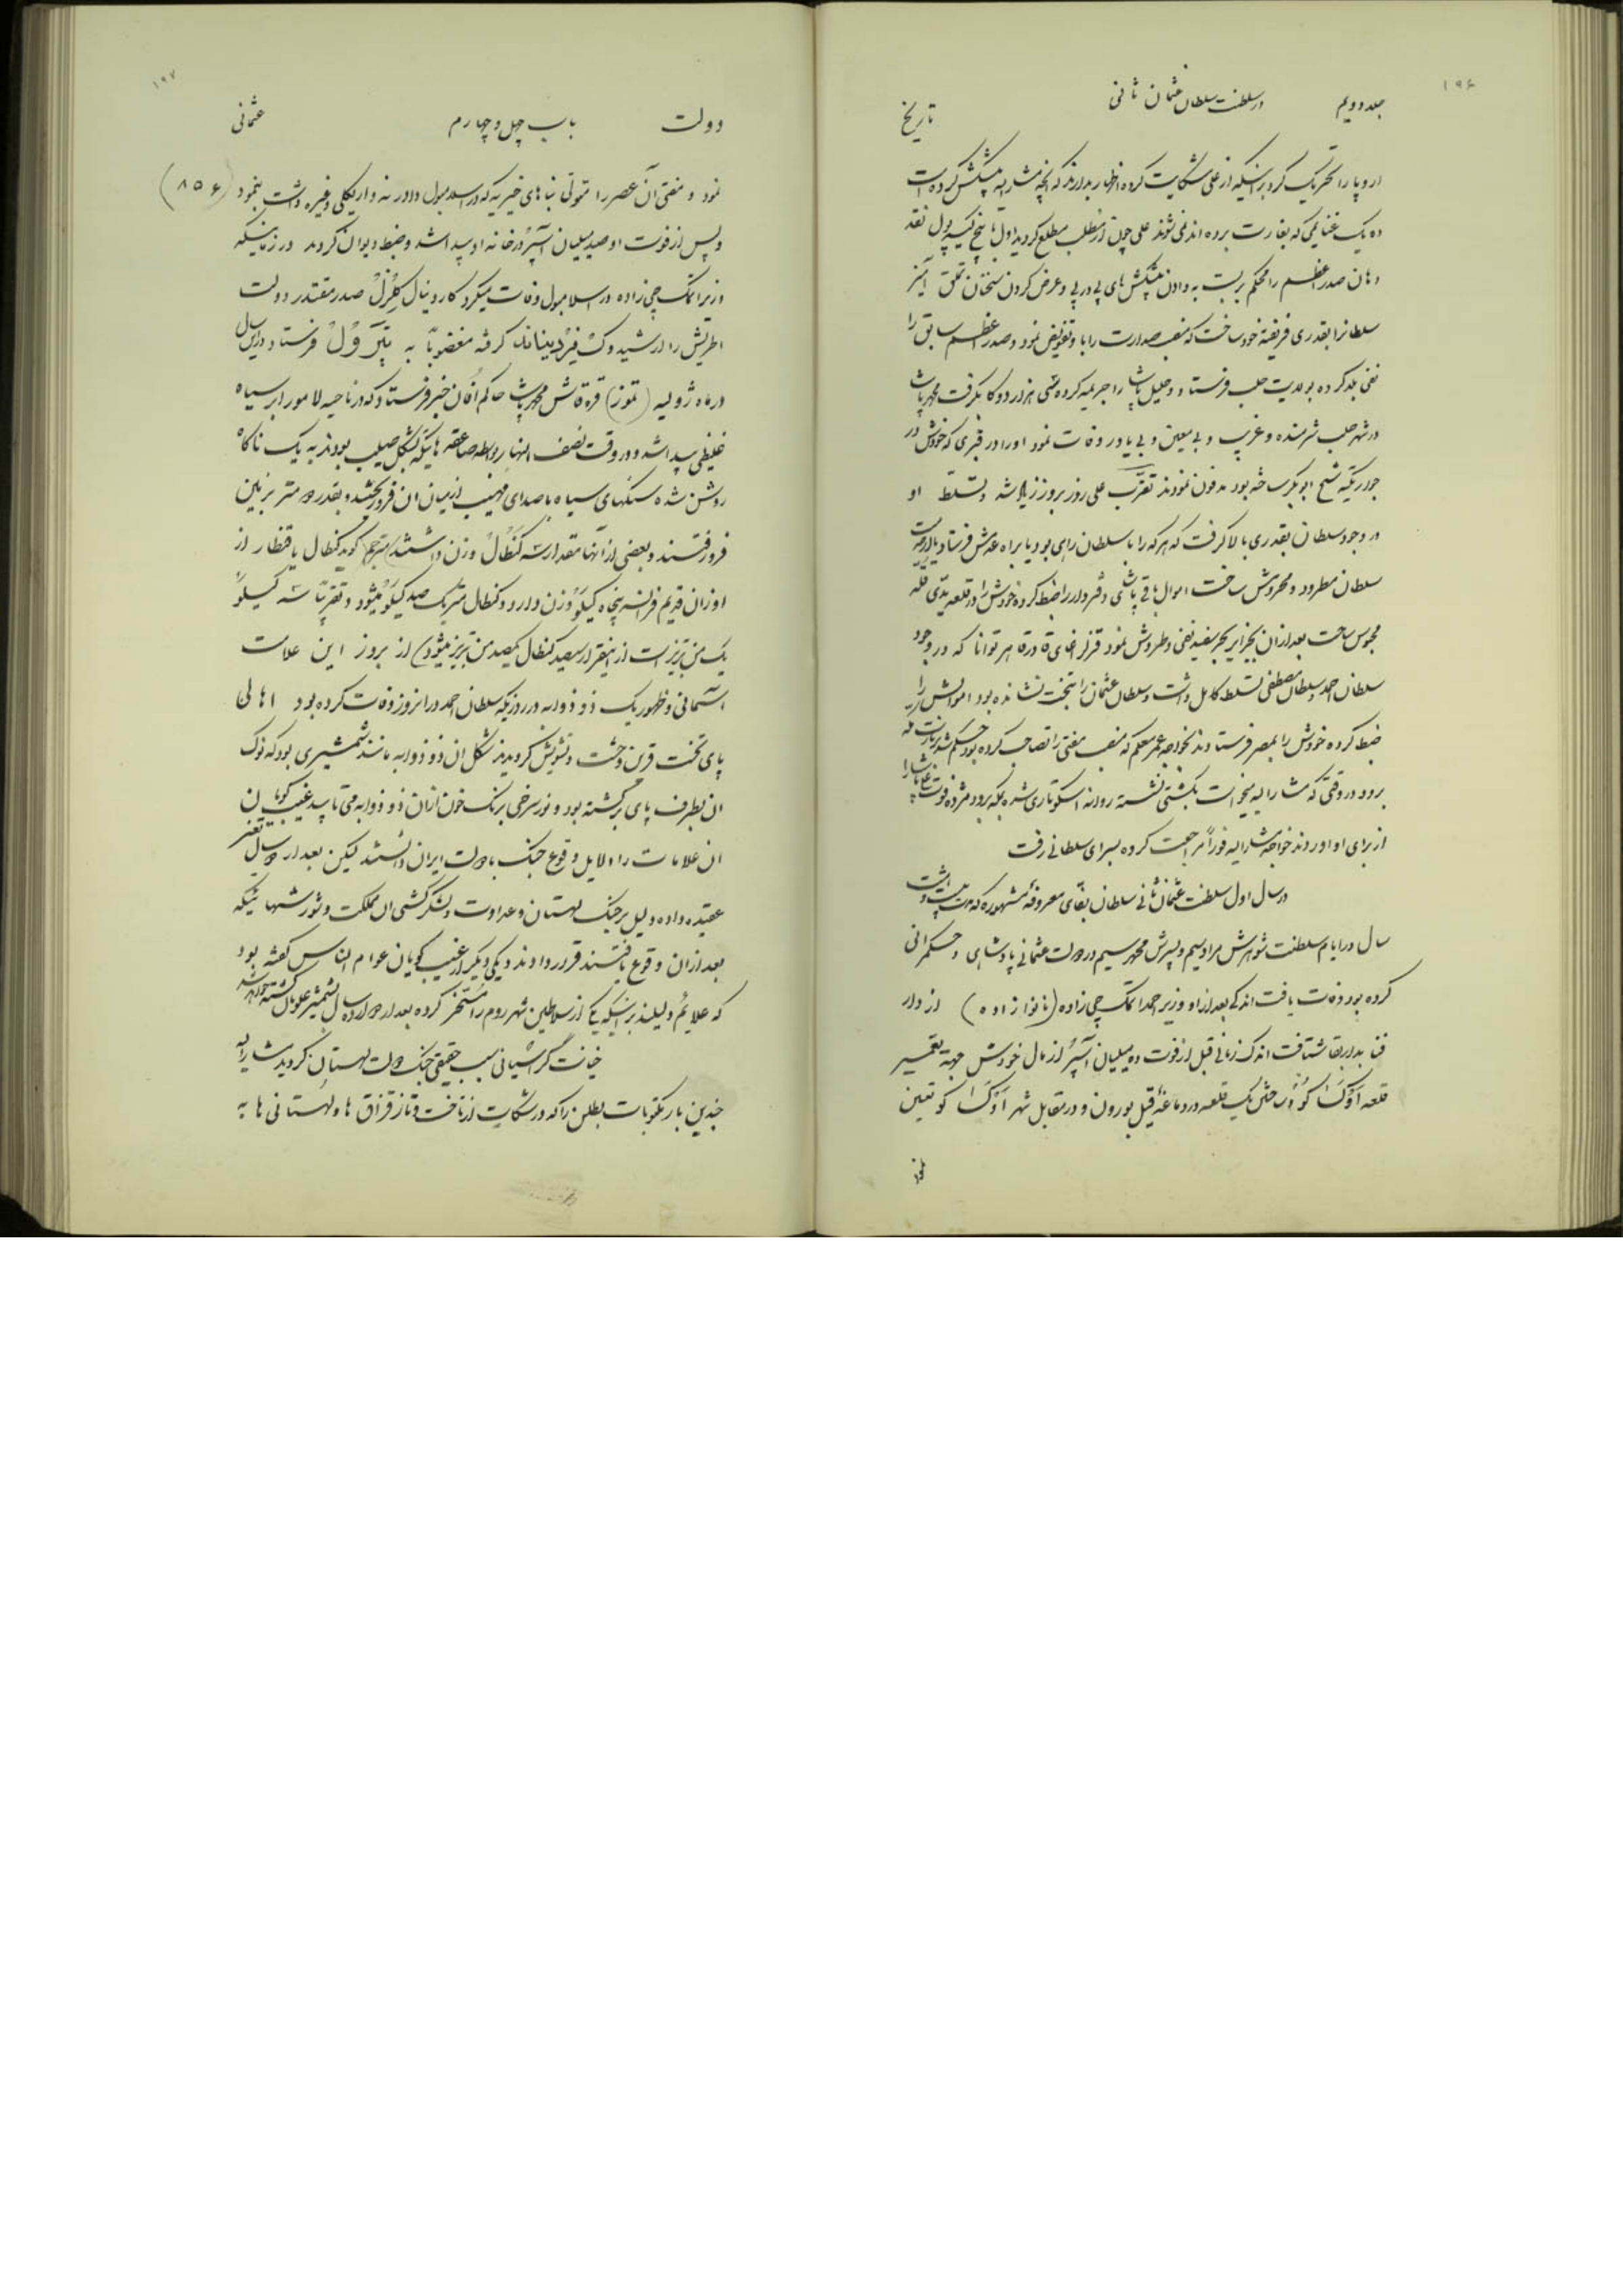 ۱۹۶
جلد دویم
در سلطنت سلطان عثمان ثانی
تاریخ
اروپا را تحریک کرد براینکه از علی شکایت کرده اظهار بدارند که آنچه مشارالیه پیشکش کرده است
ده یک غنایمی که بغارت برده اند نمی شوند علی چون از مطلب مطلع گردید اول با پنج کیسه پول نقد
دهان صدر اعظم را محکم بربست به دادن پیشکش های پی در پی و عرض کردن سخنان تملق آمیز
سلطانرا بقدری فریفته خود ساخت که منصب صدارت را باو تفویض نمود و صدر اعظم سابق را
نفی بلد کرده بولایت حلب فرستاد و خلیل پاشا را جریمه کرده سی هزار دوکا بگرفت محمد پاشا
در شهر حلب شرمنده و غریب و بی معین و بی یاور وفات نمود او را در قبری که خودش در
جوار تکیه شیخ ابو بکر ساخته بود مدفون نمودند تقرّب علی روز بروز زیاد شد و تسلط او
در وجود سلطان بقدری بالا گرفت که هر که را با سلطان رای بود یا براه عدمش فرستاد یا از خدمت
سلطان مطرود و محروش ساخت اموال باقی پاشای دفتردار را ضبط کرده خودش را در قلعه یدی قله
محبوس ساخت بعد از ان بجزایر بحر سفید نفی و طردش نمود قزلر اغای قادر قاهر توانا که در وجود
سلطان احمد و سلطان مصطفی تسلط کامل داشت و سلطان عثمان را بتخت نشانده بود اموالش را
ضبط کرده خودش را بمصر فرستادند بخواجه عمر معلم که منصب مفتی را تصاحب کرده بود حکم شد بزیارت مکه
برود در وقتی که مشار الیه میخواست بکشتی نشسته روانه اسکوتاری شده بمکه برود مژده فوت علی پاشا را
از برای او اوردند خواجه مشارالیه فوراً مراجعت کرده بسرای سلطانی رفت
در سال اول سلطنت عثمان ثانی سلطان بفّای معروفهٔ مشهوره که مدت بیست و هشت
سال در ایام سلطنت شوهرش مراد سیم و پسرش محمد سیم در دولت عثمانی پادشاهی و حکمرانی
کرده بود وفات یافت اندکی بعد از او وزیر احمد اتمک چی زاده (نانوا زاده) از دار
فنا بدار بقا شتافت اندک زمانی قبل از فوت ده میلیان آسپر از مال خودش بجهة تعمیر
قلعه اوکزاکو و ساختن یک قلعه در دماغهٔ قیل بورون و در مقابل شهر اوکزاکو تعیین
نمود
۱۹۷
دولت
باب چهل و چهارم
عثمانی
نمود و مفتی آن عصر را متولّی بناهای خیریه که در اسلامبول و ادرنه و اریکلی و غیره داشت بنمود (۸۵۶)
و پس از فوت او صد میلیان آسپر در خانه او پیدا شد و ضبط دیوان کردند در زمانیکه
وزیر اتمک چی زاده در اسلامبول وفات میکرد کاردینال کلزل صدر مقتدر دولت
اطریش را ارشیدوک فیردیناند گرفته مغضوباً به تیرول فرستاد در این سال
در ماه ژولیه (تموز) قره قاش محمد پاشا حاکم افان خبر فرستاد که در ناحیه لامور ابر سیاه
غلیظی پیدا شد و در وقت نصف النهار بواسطه صاعقه هائیکه بشکل صلیب بودند به یک ناگاه
روشن شده سنگهای سیاه با صدای مهیب از میان ان فرو ریختند و بقدر دو متر بزمین
فرو رفتند و بعضی از آنها مقدار سه کنطال وزن داشتند (مترجم گوید کنطال یا قنطار از
اوزان قدیم فرانسه پنجاه کیلو وزن دارد و کنطال متریک صد کیلو میشود و تقریباً سه کیلو
یک من تبریز است از اینقرار سیصد کنطال یکصد من تبریز میشود) از بروز این علامت
اسمانی و ظهور یک ذو ذوابه در روزیکه سلطان احمد در انروز وفات کرده بود اهالی
پای تخت قرین وحشت و تشویش گردیدند شکل ان ذو ذوابه مانند شمشیری بود که نوک
ان بطرف پای برگشته بود و نور سرخی برنگ خون از ان ذو ذوابه می تابید غیب گویان
ان علامات را دلایل وقوع جنگ با دولت ایران دانستند لیکن بعد از دو سال تغییر
عقیده داده دلیل بر جنگ لهستان و عداوت و لشکر کشی ان مملکت و شورشهائیکه
بعد از ان وقوع یافتند قرار دادند و یکی دیگر از غیب گویان عوام الناس گفته بود
که علایم دلیلند براینکه یکی از سلاطین شهر روم را مسخر کرده بعد از دوازده سال بشمشیر عدو مال کشته خواهد شد
خیانت گراسیانی سبب حقیقی جنگ دولت لهستان گردید مشارالیه
چندین بار مکتوبات بطلن را که در شکایت از تاخت و تاز قزاق ها و لهستانی ها به